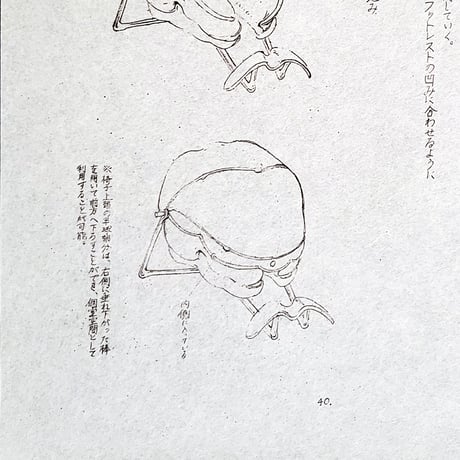 していく。
フットレストの凹みに合わせるように
み
※椅子上部の半球部分は、右側に垂れ下がった棒
を用いて前方へ下ろすことができ、個室空間として
利用すること が可能。
内側に入っている
40.